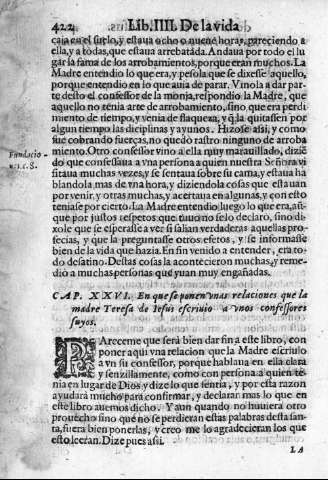 422 Lib. IIII. De la vida
caia en el suelo, y estaua ocho o nueue horas, pareciendo a
ella, y a todas, que estaua arrebatada. Andaua por todo el lu
gar la fama de los arrobamientos, porque eran muchos. La
Madre entendio lo que era, y pesola que se dixesse aquello,
porque entendio en lo que auia de parar. Vino la a dar par
te desto el confessor de la monja, respondio la Madre, que
aquello no tenia arte de arrobamiento, sino que era perdi
miento de tiempo, y venia de flaqueza, y q̃ la quitassen por
algun tiempo las diciplinas y ayunos. Hizose assi, y como
fue cobrando fuerças, no quedo rastro ninguno de arroba
miento. Otro confessor vino a ella muy marauillado, diziẽ
Fundacio-
do que confessaua a vna persona a quien nuestra Señora vi
n. 1. c. 8.
sitaua muchas vezes, y se sentaua sobre su cama, y estaua ha
blando la mas de vna hora, y diziendola cosas que estauan
por venir, y otras muchas, y acertaua en algunas, y con esto
teniase por cierto. La Madre entendio luego lo que era, aũ
que por justos respetos que tuuo no selo declaro, sino di-
xole que se esperasse a ver si salian verdaderas aquellas pro-
fecias, y que la preguntasse otros efetos, y se informasse
bien de la vida que hazia. En fin venido a entender, era to
do desatino. Destas cosas la acontecieron muchas, y reme-
dio a muchas personas que yuan muy engañadas.
CAP. XXVI. En que se ponen vnas relaciones que la
madre Teresa de Iesus escriuio a vnos confessores
suyos.
PAreceme que sera bien dar fin a este libro, con
poner aqui vna relacion que la Madre escriuio
a vn su confessor, porque hablaua en ella clara
y senzillamente, como con persona a quien te-
nia en lugar de Dios y dize lo que sentia, y por esta razon
ayudará mucho para confirmar, y declarar mas lo que en
este libro auemos dicho. Y aun quando no huuiera otro
prouecho sino que no se perdieran estas palabras desta san-
ta, fuera bien ponerlas, y creo me lo agradeceran los que
esto leeran. Dize pues assi.
LA